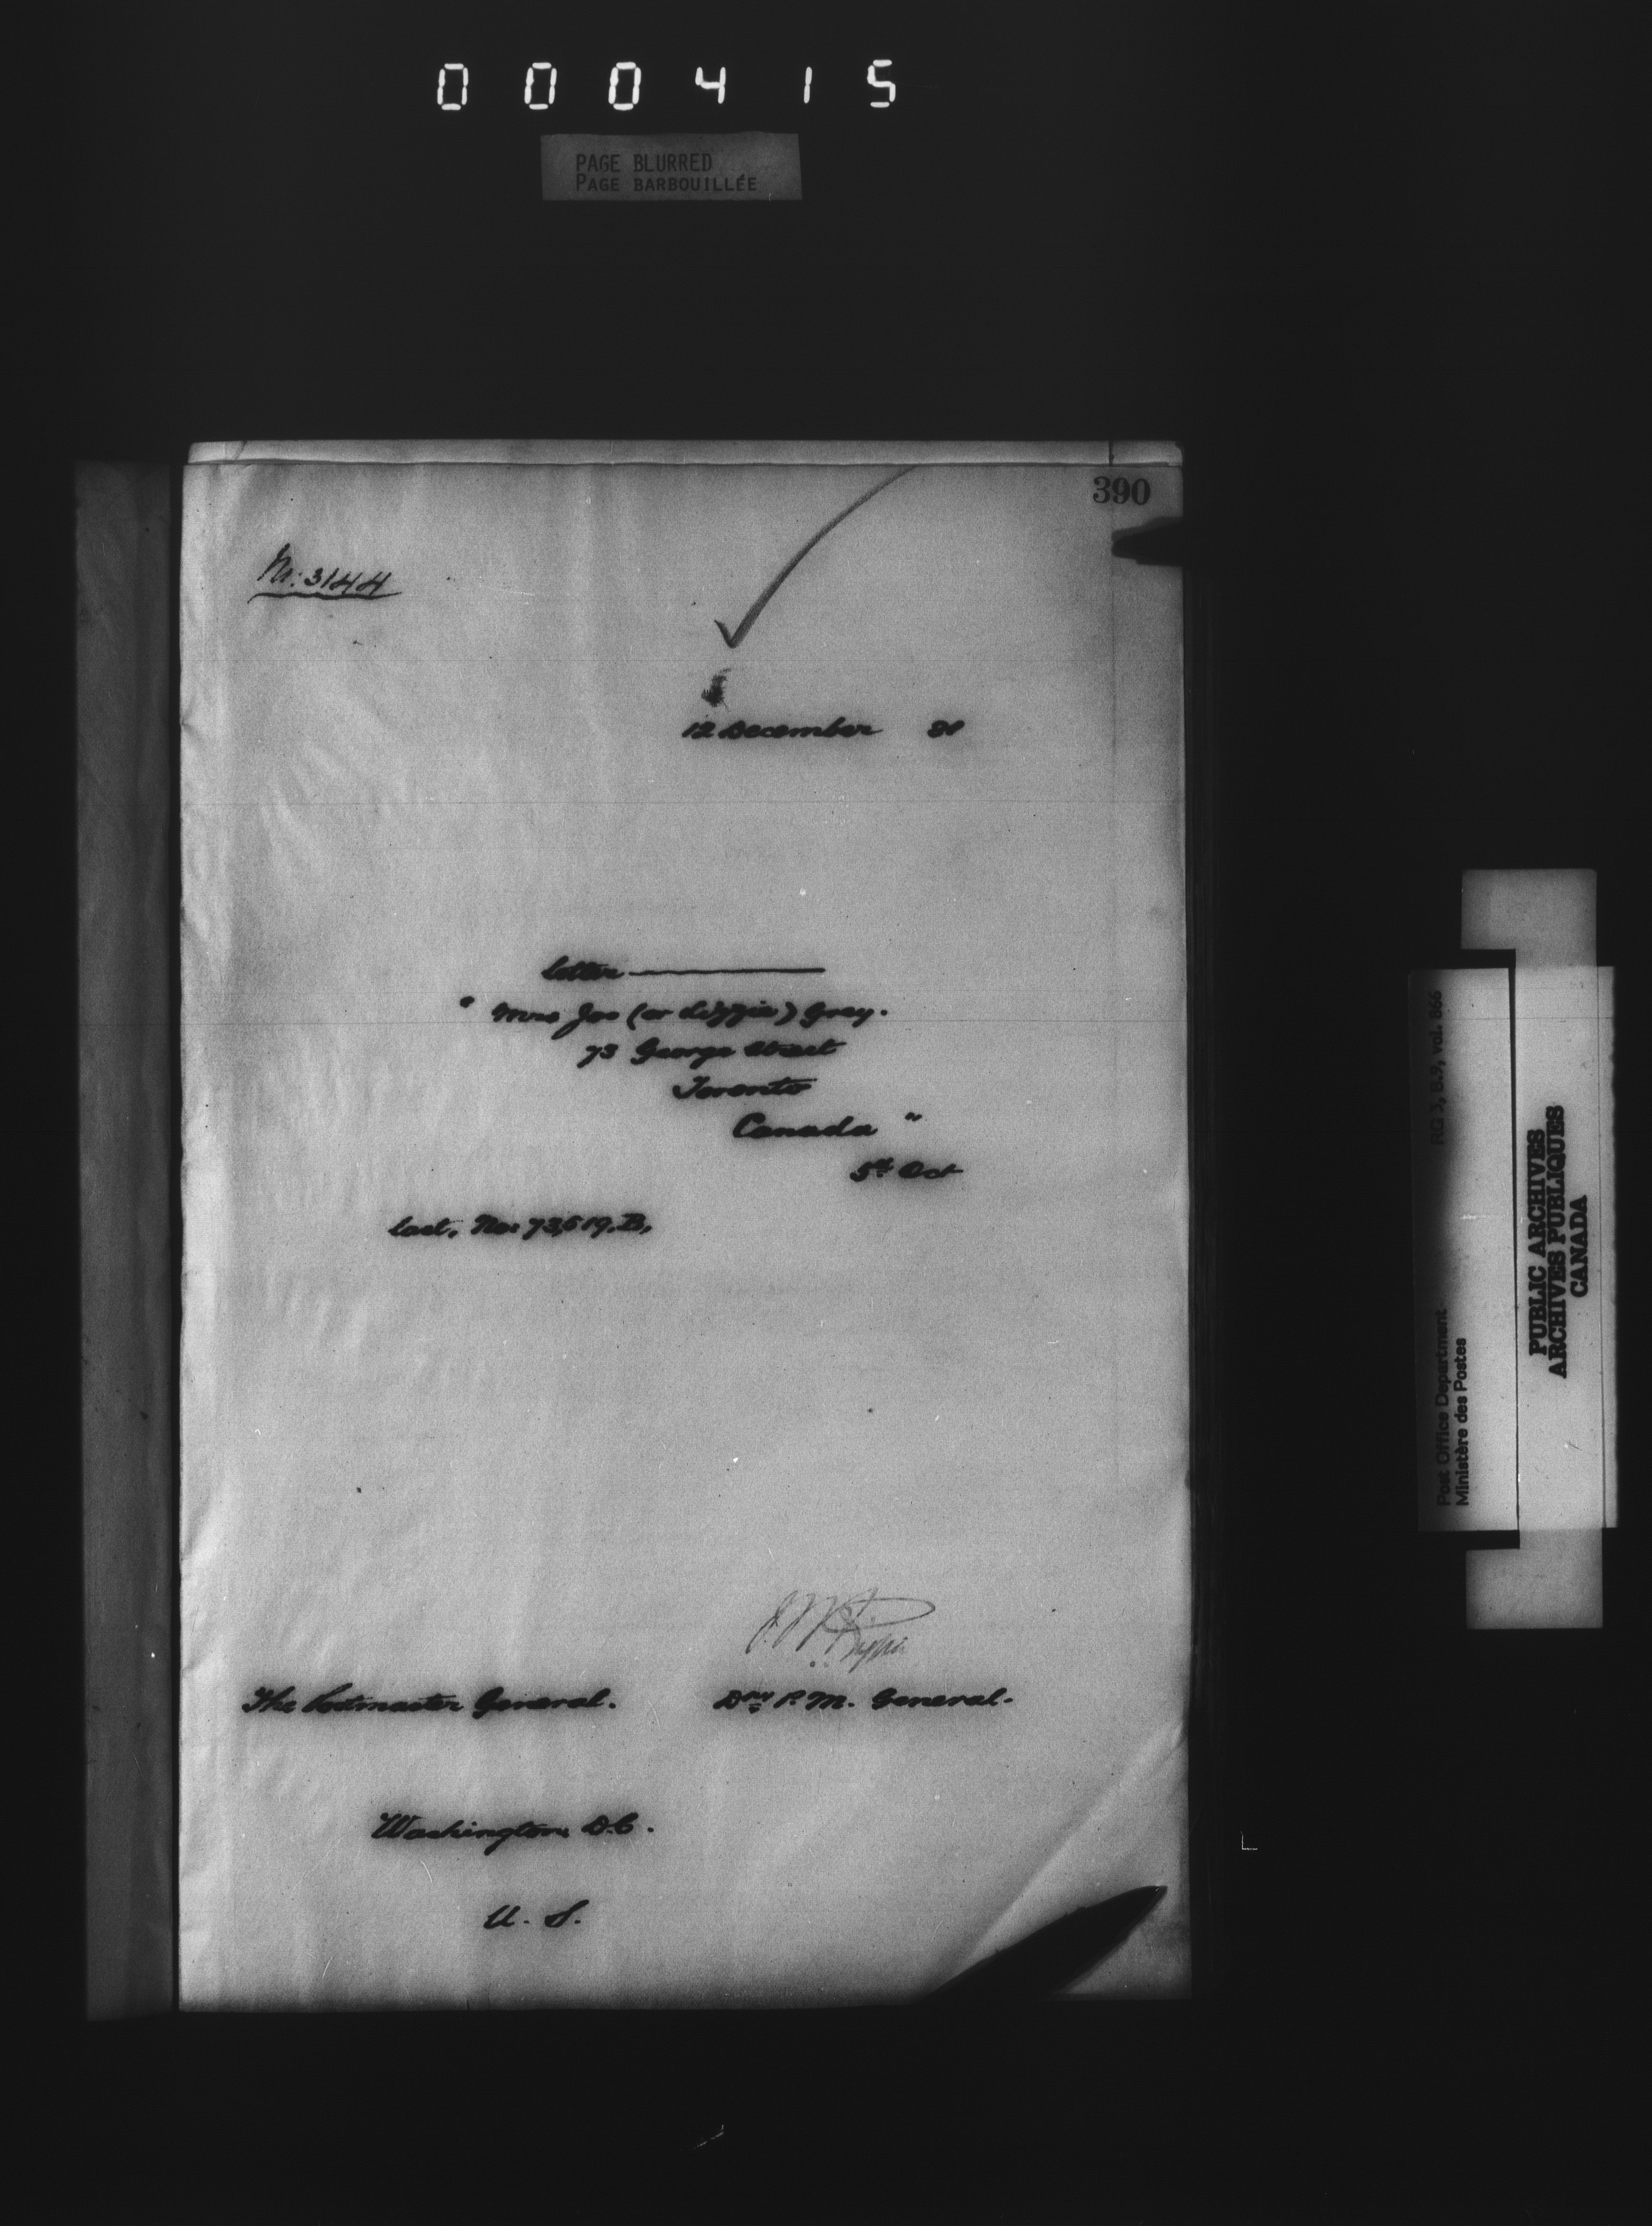 000415
PAGE BLURRED
PAGE BARBOUILLÉE
390
No: 3144
12 December
Letter
" Mrs Joe (or Lizzie) Grey.
73 George Street
Toronto
Canada "
5th Oct
Last, No: 73,519, B,
The Postmaster General.
Dpy P. M. General.
Washington D.C.
U. S.
RG 3, B 9, vol. 866
Post Office Department
Ministère des Postes
PUBLIC ARCHIVES
ARCHIVES PUBLIQUES
CANADA